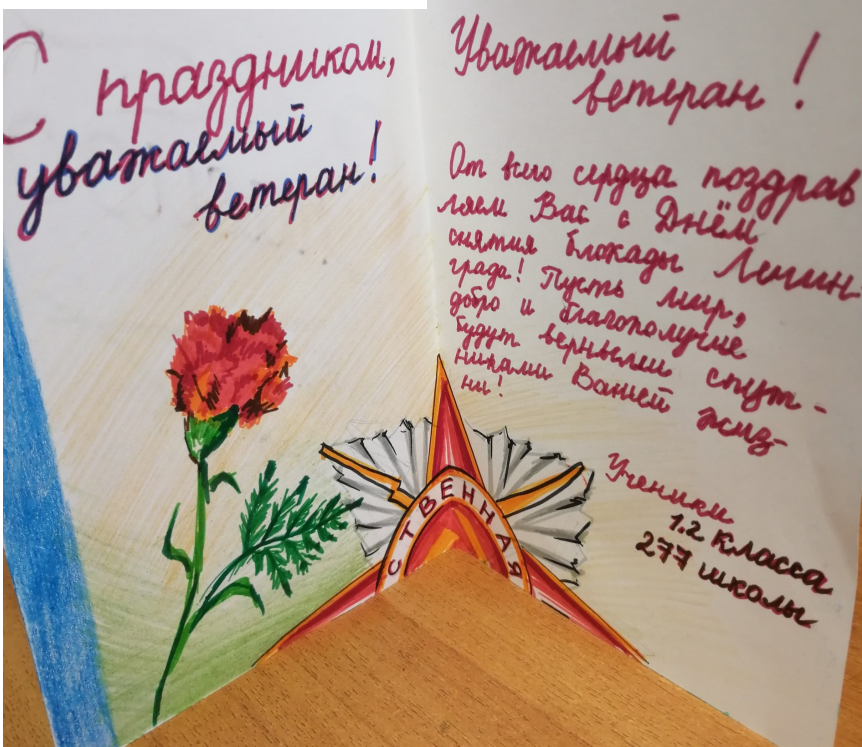 С праздником,
уважаемый
ветеран!
Уважаемый
ветеран!
От всего сердца поздрав
ляем Вас с Днём
снятия блокады Ленин-
града! Пусть мир,
добро и благополучие
будут верными спут-
никами Вашей жиз-
ни!
Ученики
1.2 класса
277 школы
СТВЕННАЯ